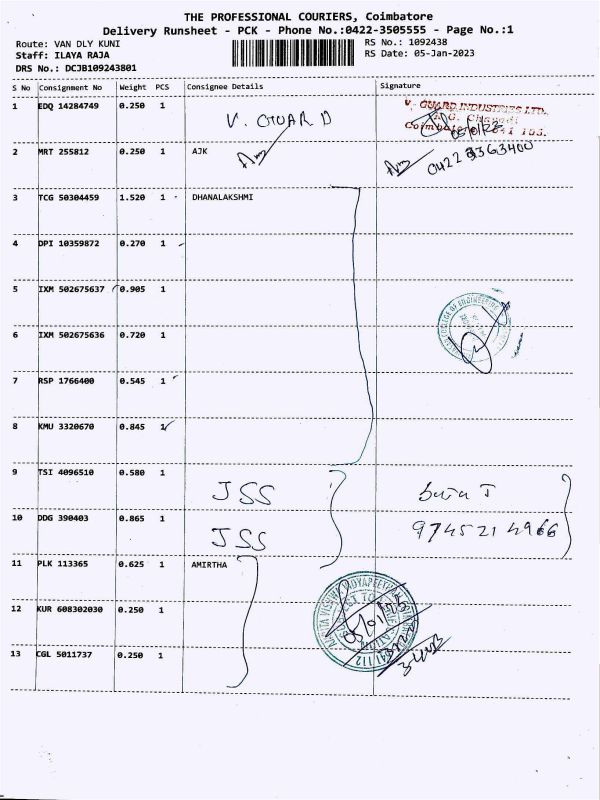 THE PROFESSIONAL COURIERS, Coimbatore
Delivery Runsheet - PCK - Phone No.:0422-3505555 - Page No.:1
Route: VAN DLY KUNI
RS No.: 1092438
Staff: ILAYA RAJA
RS Date: 05-Jan-2023
DRS No.: DCJB109243801
S No Consignment No Weight PCS Consignee Details Signature
1 EDQ 14284749 0.250 1 V. GUARD
V. GUARD INDUSTRIES LTD.,
2 MRT 255812 0.250 1 AJK
0422 2363400
3 TCG 50304459 1.520 1 DHANALAKSHMI
4 DPI 10359872 0.270 1
5 IXM 502675637 0.905 1
6 IXM 502675636 0.720 1
7 RSP 1766400 0.545 1
8 KMU 3320670 0.845 1
9 TSI 4096510 0.580 1 JSS
10 DDG 390403 0.865 1 JSS 9745214966
11 PLK 113365 0.625 1 AMIRTHA
12 KUR 608302030 0.250 1
05/01/23
13 CGL 5011737 0.250 1